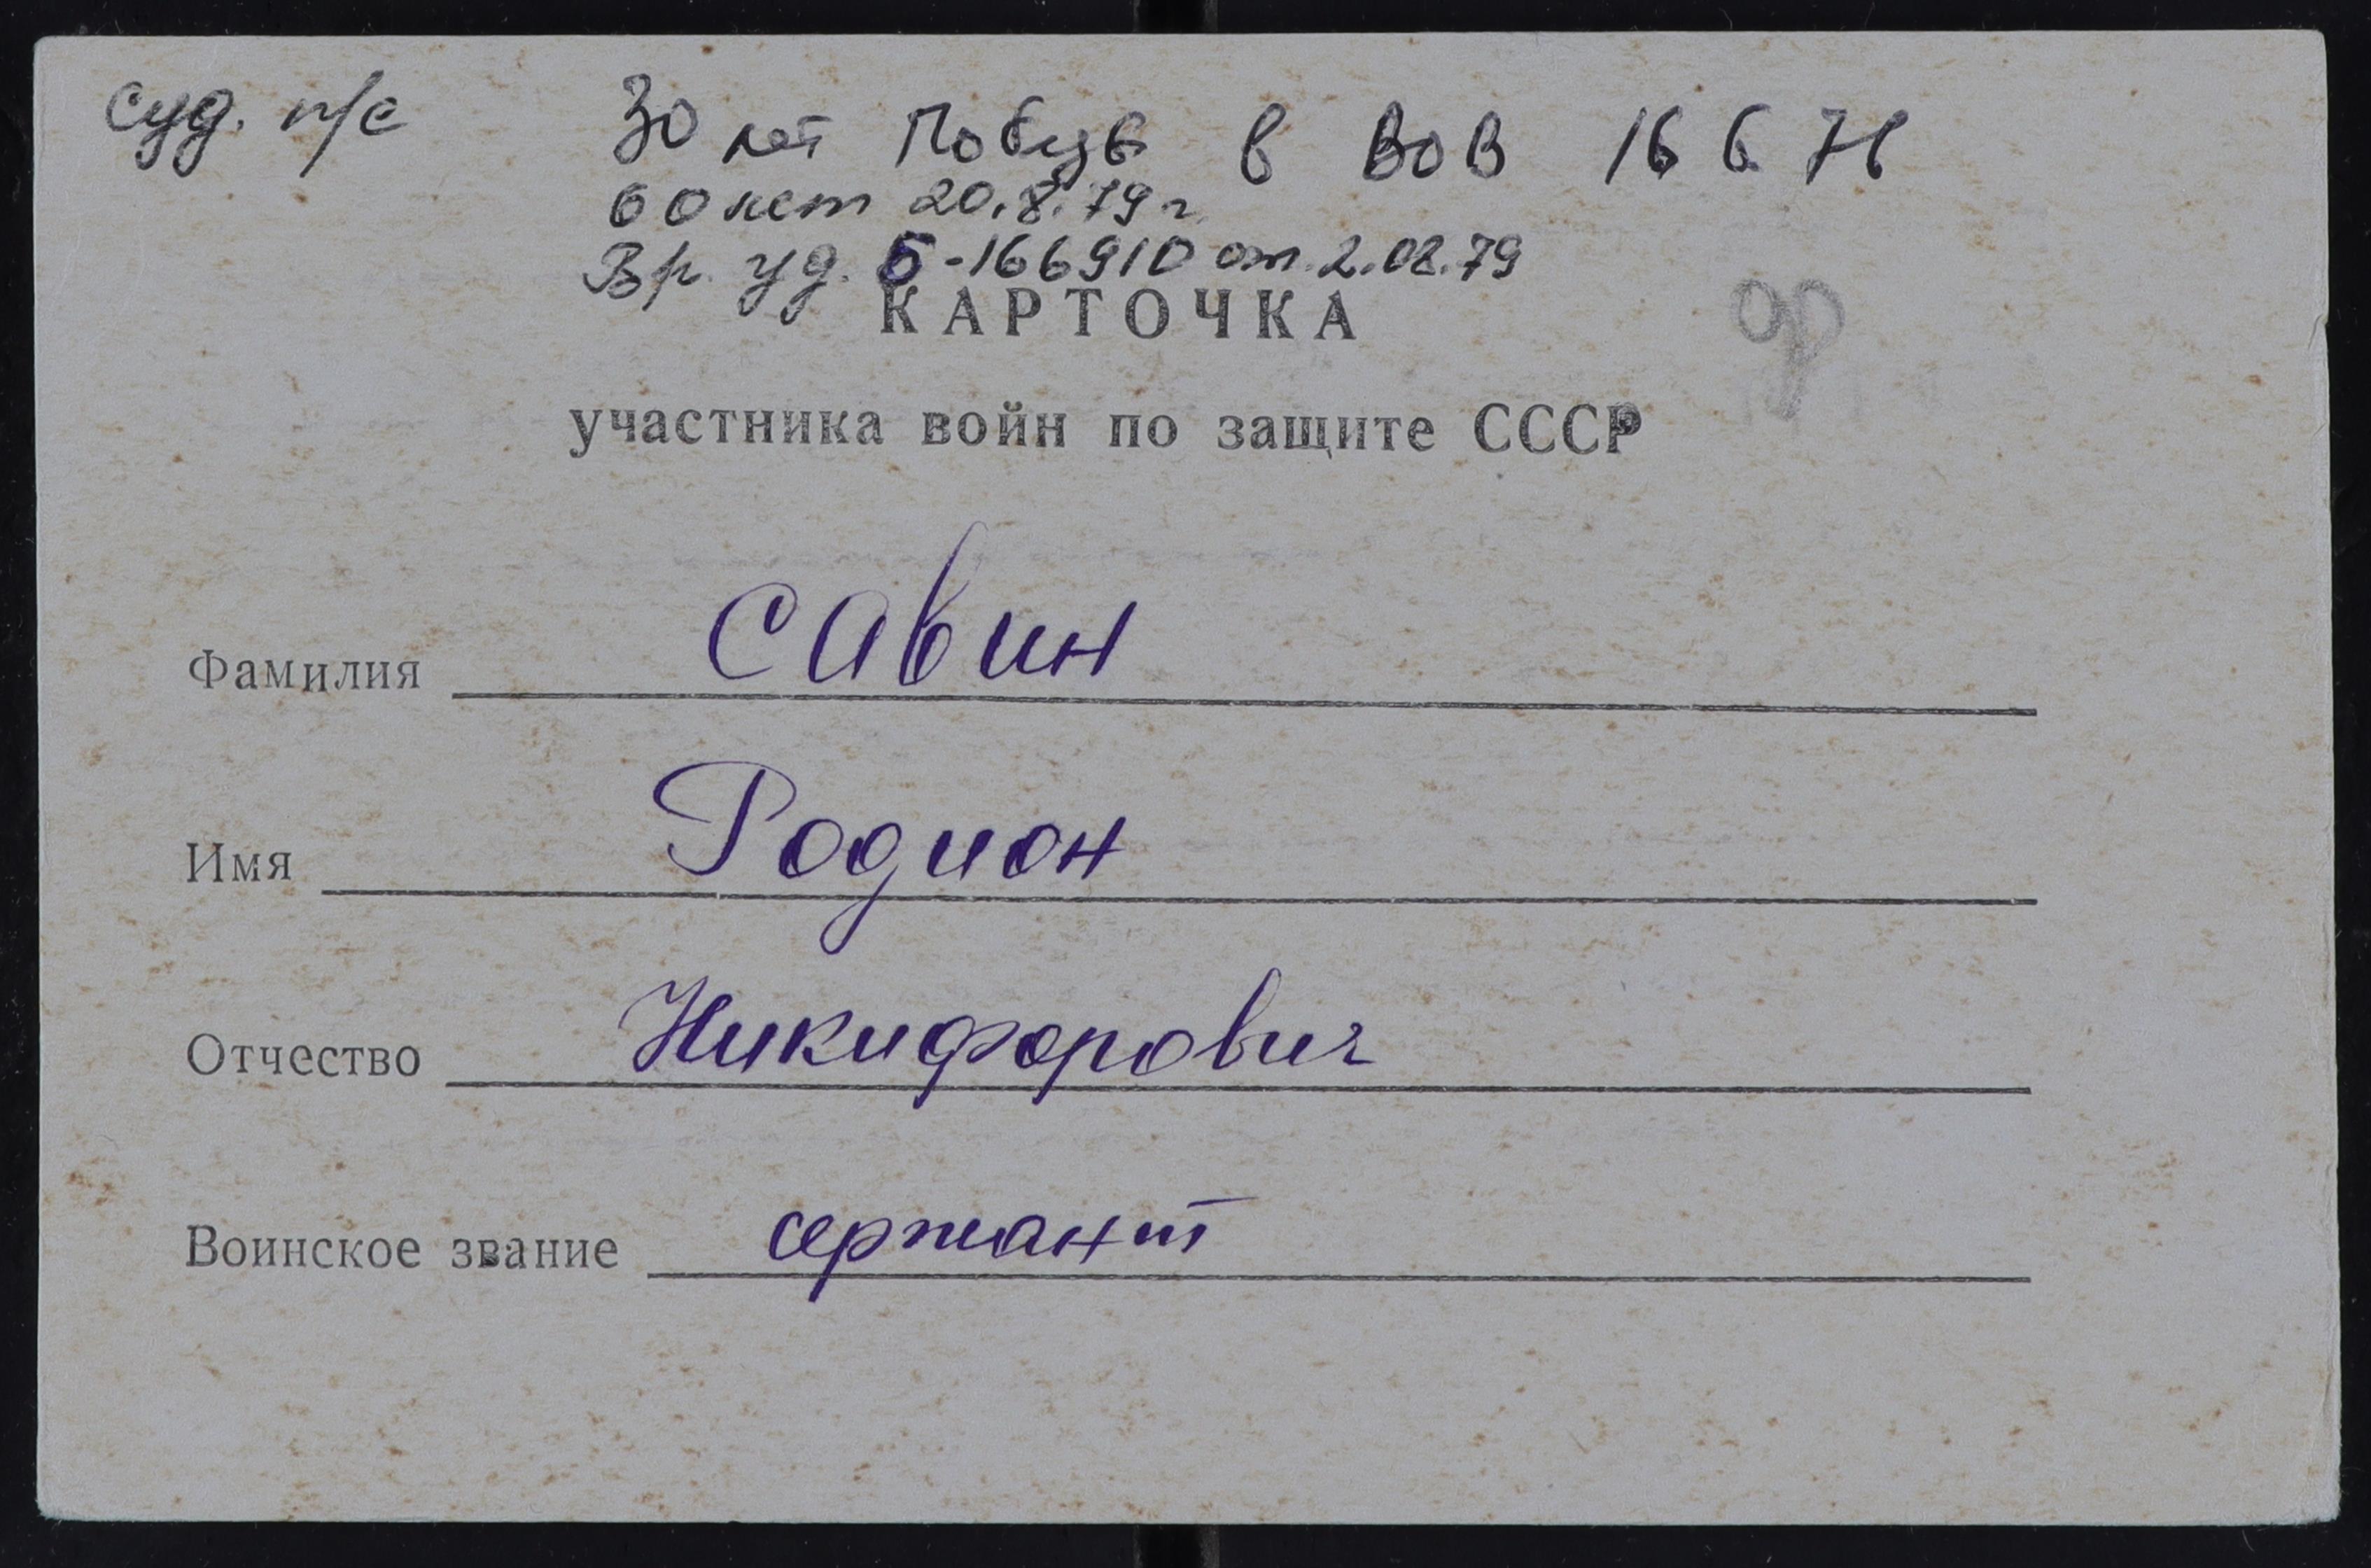 суд. п/с
30 лет Победы в ВОВ 16 6 76
60 лет 20.8.79 г.
Вр. уд. Б-166910 от 2.08.79
КАРТОЧКА
участника войн по защите СССР
Фамилия Савин
Имя Родион
Отчество Никифорович
Воинское звание сержант